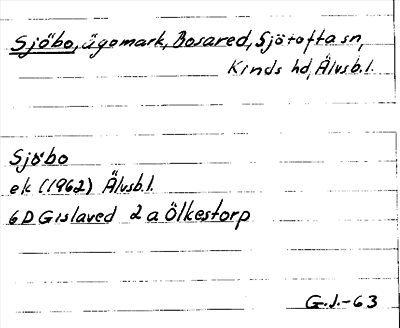 Sjöbo, ägomark, Bosared, Sjötofta sn,
Kinds hd, Älvsb.l.
Sjöbo
ek (1962) Älvsb.l.
6D Gislaved 2 a Ölkestorp
G.J.-63